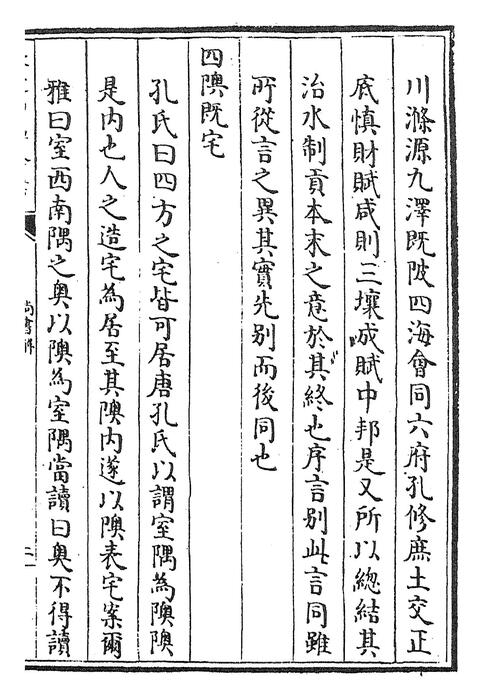 川滌源九澤既陂四海會同六府孔修庶土交正
底慎財賦咸則三壤成賦中邦是又所以總結其
治水制貢本末之意於其終也序言别此言同雖
所從言之異其實先别而後同也
四隩既宅
孔氏曰四方之宅皆可居唐孔氏以謂室隅為隩隩
是内也人之造宅為居至其隩内遂以隩表宅案爾
雅曰室西南隅之奥以隩為室隅當讀曰奥不得讀
尚書解